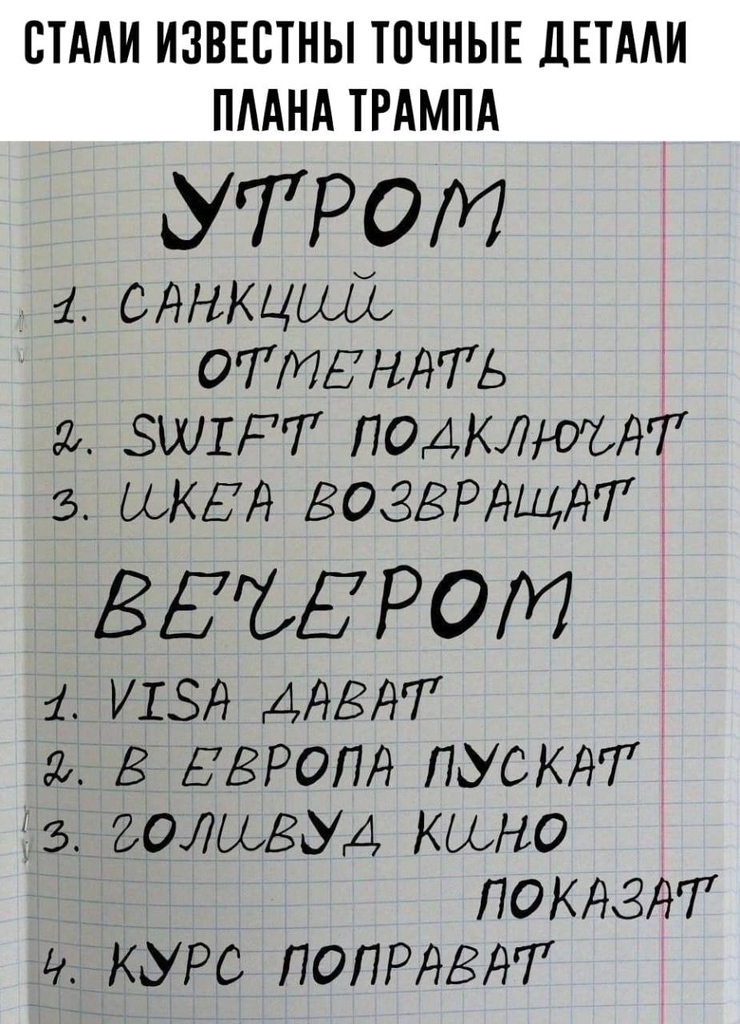 СТАЛИ ИЗВЕСТНЫ ТОЧНЫЕ ДЕТАЛИ
ПЛАНА ТРАМПА
УТРОМ
1. САНКЦИЙ
ОТМЕНАТЬ
2. SWIFT ПОДКЛЮЧАТ
3. ИКЕА ВОЗВРАЩАТ
ВЕЧЕРОМ
1. VISA ДАВАТ
2. В ЕВРОПА ПУСКАТ
3. ГОЛИВУД КИНО
ПОКАЗАТ
4. КУРС ПОПРАВАТ